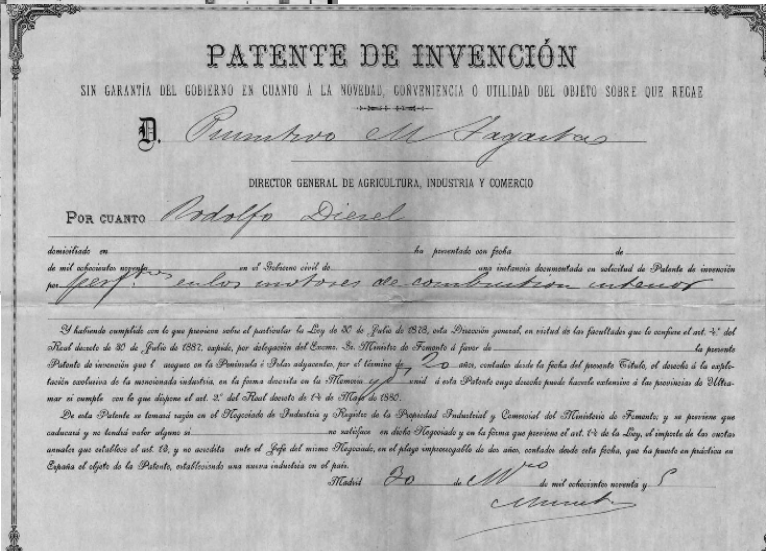 PATENTE DE INVENCIÓN
SIN GARANTÍA DEL GOBIERNO EN CUANTO Á LA NOVEDAD, CONVENIENCIA O UTILIDAD DEL OBJETO SOBRE QUE RECAE
D. Primitivo M Sagastas
DIRECTOR GENERAL DE AGRICULTURA, INDUSTRIA Y COMERCIO
POR CUANTO Rodolfo Diesel
domiciliado en ha presentado con fecha de
de mil ochocientos noventa en el Gobierno civil de una instancia documentada en solicitud de Patente de invención
por en los motores de combustion interior
Y habiendo cumplido con lo que previene sobre el particular la Ley de 30 de Julio de 1878, esta Dirección general, en virtud de las facultades que le confiere el art. 4.º del
Real decreto de 30 de Julio de 1887, expide, por delegación del Excmo. Sr. Ministro de Fomento á favor de la presente
Patente de invención que l asegure en la Península é Islas adyacentes, por el término de 20 años, contados desde la fecha del presente Título, el derecho á la explo-
tación exclusiva de la mencionada industria, en la forma descrita en la Memoria unid á esta Patente cuyo derecho puede hacerlo extensivo á las provincias de Ultra-
mar si cumple con lo que dispone el art. 2.º del Real decreto de 14 de Mayo de 1880.
De esta Patente se tomará razón en el Negociado de Industria y Registro de la Propiedad Industrial y Comercial del Ministerio de Fomento; y se previene que
caducará y no tendrá valor alguno si no satisface en dicho Negociado y en la forma que previene el art. 14 de la Ley, el importe de las cuotas
anuales que establece el art. 13, y no acredita ante el Jefe del mismo Negociado, en el plazo improrrogable de dos años, contados desde esta fecha, que ha puesto en práctica en
España el objeto de la Patente, estableciendo una nueva industria en el país.
Madrid 30 de de mil ochocientos noventa y 5